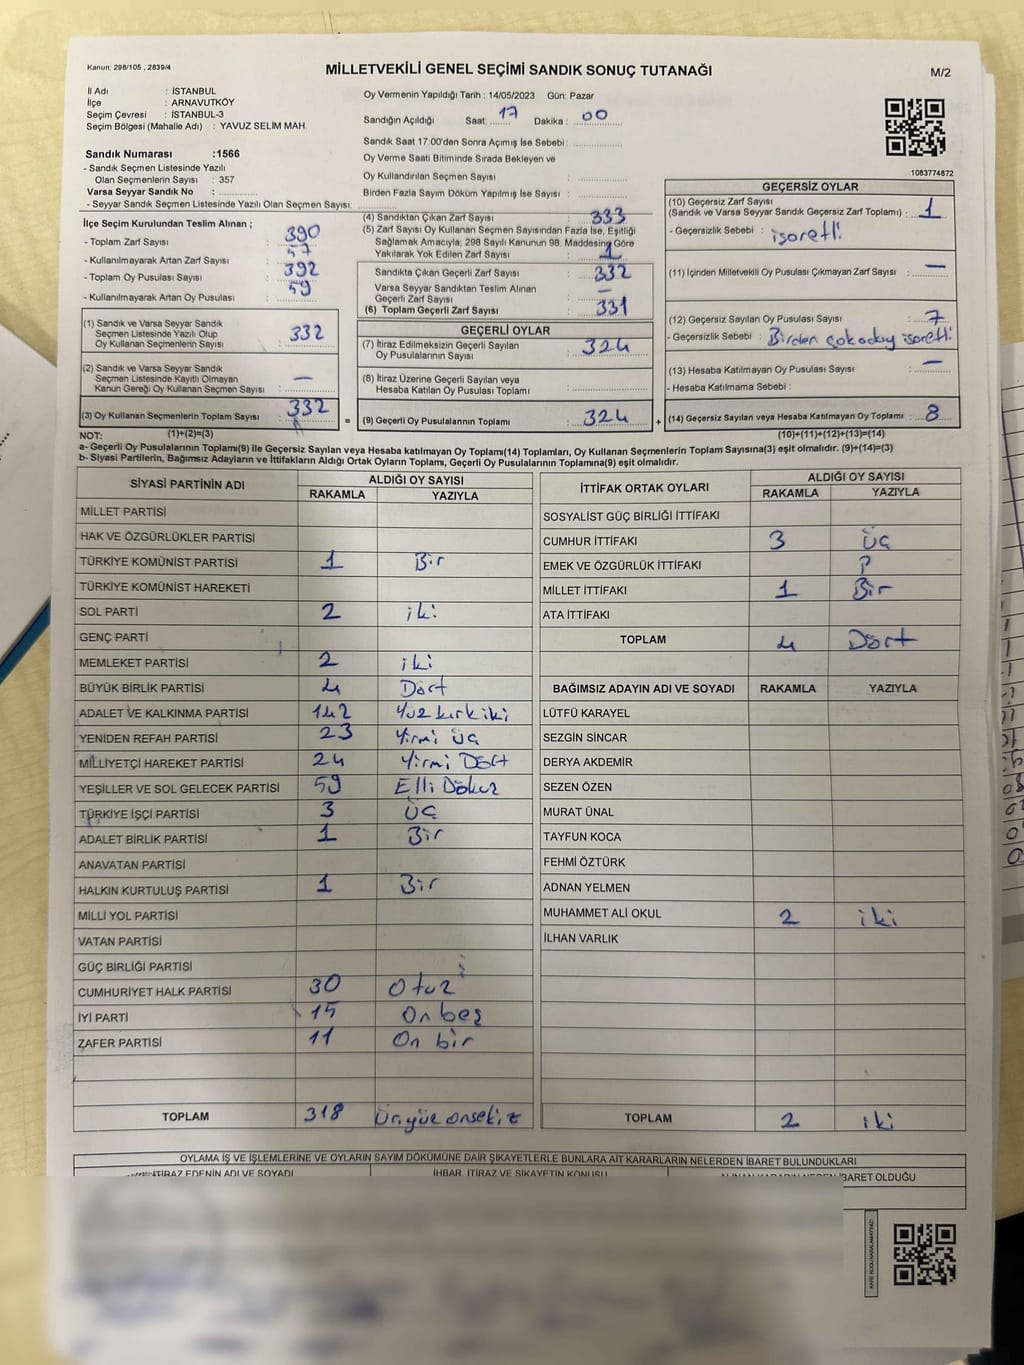 Kanun: 298/105 , 2839/4
MİLLETVEKİLİ GENEL SEÇİMİ SANDIK SONUÇ TUTANAĞI
M/2
İl Adı : İSTANBUL
İlçe : ARNAVUTKÖY
Seçim Çevresi : İSTANBUL-3
Seçim Bölgesi (Mahalle Adı) : YAVUZ SELİM MAH.
Sandık Numarası :1566
- Sandık Seçmen Listesinde Yazılı
Olan Seçmenlerin Sayısı : 357
Varsa Seyyar Sandık No :
- Seyyar Sandık Seçmen Listesinde Yazılı Olan Seçmen Sayısı:
Oy Vermenin Yapıldığı Tarih : 14/05/2023 Gün: Pazar
Sandığın Açıldığı Saat: 17 Dakika : 00
Sandık Saat 17:00'den Sonra Açımış İse Sebebi:
Oy Verme Saati Bitiminde Sırada Bekleyen ve
Oy Kullandırılan Seçmen Sayısı :
Birden Fazla Sayım Döküm Yapılmış İse Sayısı :
1083774872
İlçe Seçim Kurulundan Teslim Alınan ;
- Toplam Zarf Sayısı : 390
- Kullanılmayarak Artan Zarf Sayısı : 57
- Toplam Oy Pusulası Sayısı : 392
- Kullanılmayarak Artan Oy Pusulası : 59
(1) Sandık ve Varsa Seyyar Sandık
Seçmen Listesinde Yazılı Olup
Oy Kullanan Seçmenlerin Sayısı : 332
(2) Sandık ve Varsa Seyyar Sandık
Seçmen Listesinde Kayıtlı Olmayan
Kanun Gereği Oy Kullanan Seçmen Sayısı : —
(3) Oy Kullanan Seçmenlerin Toplam Sayısı : 332
(4) Sandıktan Çıkan Zarf Sayısı : 333
(5) Zarf Sayısı Oy Kullanan Seçmen Sayısından Fazla İse, Eşitliği
Sağlamak Amacıyla, 298 Sayılı Kanunun 98. Maddesine Göre
Yakılarak Yok Edilen Zarf Sayısı : 1
Sandıkta Çıkan Geçerli Zarf Sayısı : 332
Varsa Seyyar Sandıktan Teslim Alınan
Geçerli Zarf Sayısı : —
(6) Toplam Geçerli Zarf Sayısı : 331
GEÇERLİ OYLAR
(7) İtiraz Edilmeksizin Geçerli Sayılan
Oy Pusulalarının Sayısı : 324
(8) İtiraz Üzerine Geçerli Sayılan veya
Hesaba Katılan Oy Pusulası Toplamı :
= (9) Geçerli Oy Pusulalarının Toplamı : 324 +
GEÇERSİZ OYLAR
(10) Geçersiz Zarf Sayısı
(Sandık ve Varsa Seyyar Sandık Geçersiz Zarf Toplamı) : 1
- Geçersizlik Sebebi : işaretli
(11) İçinden Milletvekili Oy Pusulası Çıkmayan Zarf Sayısı : —
(12) Geçersiz Sayılan Oy Pusulası Sayısı : 7
- Geçersizlik Sebebi : Birden çok aday işaretli
(13) Hesaba Katılmayan Oy Pusulası Sayısı : —
- Hesaba Katılmama Sebebi :
(14) Geçersiz Sayılan veya Hesaba Katılmayan Oy Toplamı : 8
NOT: (1)+(2)=(3)
(10)+(11)+(12)+(13)=(14)
a- Geçerli Oy Pusulalarının Toplamı(9) ile Geçersiz Sayılan veya Hesaba katılmayan Oy Toplamı(14) Toplamları, Oy Kullanan Seçmenlerin Toplam Sayısına(3) eşit olmalıdır. (9)+(14)=(3)
b- Siyasi Partilerin, Bağımsız Adayların ve İttifakların Aldığı Ortak Oyların Toplamı, Geçerli Oy Pusulalarının Toplamına(9) eşit olmalıdır.
SİYASİ PARTİNİN ADI
ALDIĞI OY SAYISI
RAKAMLA YAZIYLA
MİLLET PARTİSİ
HAK VE ÖZGÜRLÜKLER PARTİSİ
TÜRKİYE KOMÜNİST PARTİSİ 1 Bir
TÜRKİYE KOMÜNİST HAREKETİ
SOL PARTİ 2 iki
GENÇ PARTİ
MEMLEKET PARTİSİ 2 iki
BÜYÜK BİRLİK PARTİSİ 4 Dört
ADALET VE KALKINMA PARTİSİ 142 Yüz kırk iki
YENİDEN REFAH PARTİSİ 23 Yirmi üç
MİLLİYETÇİ HAREKET PARTİSİ 24 Yirmi Dört
YEŞİLLER VE SOL GELECEK PARTİSİ 59 Elli Dokuz
TÜRKİYE İŞÇİ PARTİSİ 3 Üç
ADALET BİRLİK PARTİSİ 1 Bir
ANAVATAN PARTİSİ
HALKIN KURTULUŞ PARTİSİ 1 Bir
MİLLİ YOL PARTİSİ
VATAN PARTİSİ
GÜÇ BİRLİĞİ PARTİSİ
CUMHURİYET HALK PARTİSİ 30 Otuz
İYİ PARTİ 15 On beş
ZAFER PARTİSİ 11 On bir
TOPLAM 318 Üçyüz onsekiz
İTTİFAK ORTAK OYLARI
ALDIĞI OY SAYISI
RAKAMLA YAZIYLA
SOSYALİST GÜÇ BİRLİĞİ İTTİFAKI
CUMHUR İTTİFAKI 3 Üç
EMEK VE ÖZGÜRLÜK İTTİFAKI
MİLLET İTTİFAKI 1 Bir
ATA İTTİFAKI
TOPLAM 4 Dört
BAĞIMSIZ ADAYIN ADI VE SOYADI RAKAMLA YAZIYLA
LÜTFÜ KARAYEL
SEZGİN SİNCAR
DERYA AKDEMİR
SEZEN ÖZEN
MURAT ÜNAL
TAYFUN KOCA
FEHMİ ÖZTÜRK
ADNAN YELMEN
MUHAMMET ALİ OKUL 2 iki
İLHAN VARLIK
TOPLAM 2 iki
OYLAMA İŞ VE İŞLEMLERİNE VE OYLARIN SAYIM DÖKÜMÜNE DAİR ŞİKAYETLERLE BUNLARA AİT KARARLARIN NELERDEN İBARET BULUNDUKLARI
İTİRAZ EDENİN ADI VE SOYADI İHBAR, İTİRAZ VE ŞİKAYETİN KONUSU ALINAN KARARIN NEDEN İBARET OLDUĞU
KARE KODU KARALAMAYINIZ!